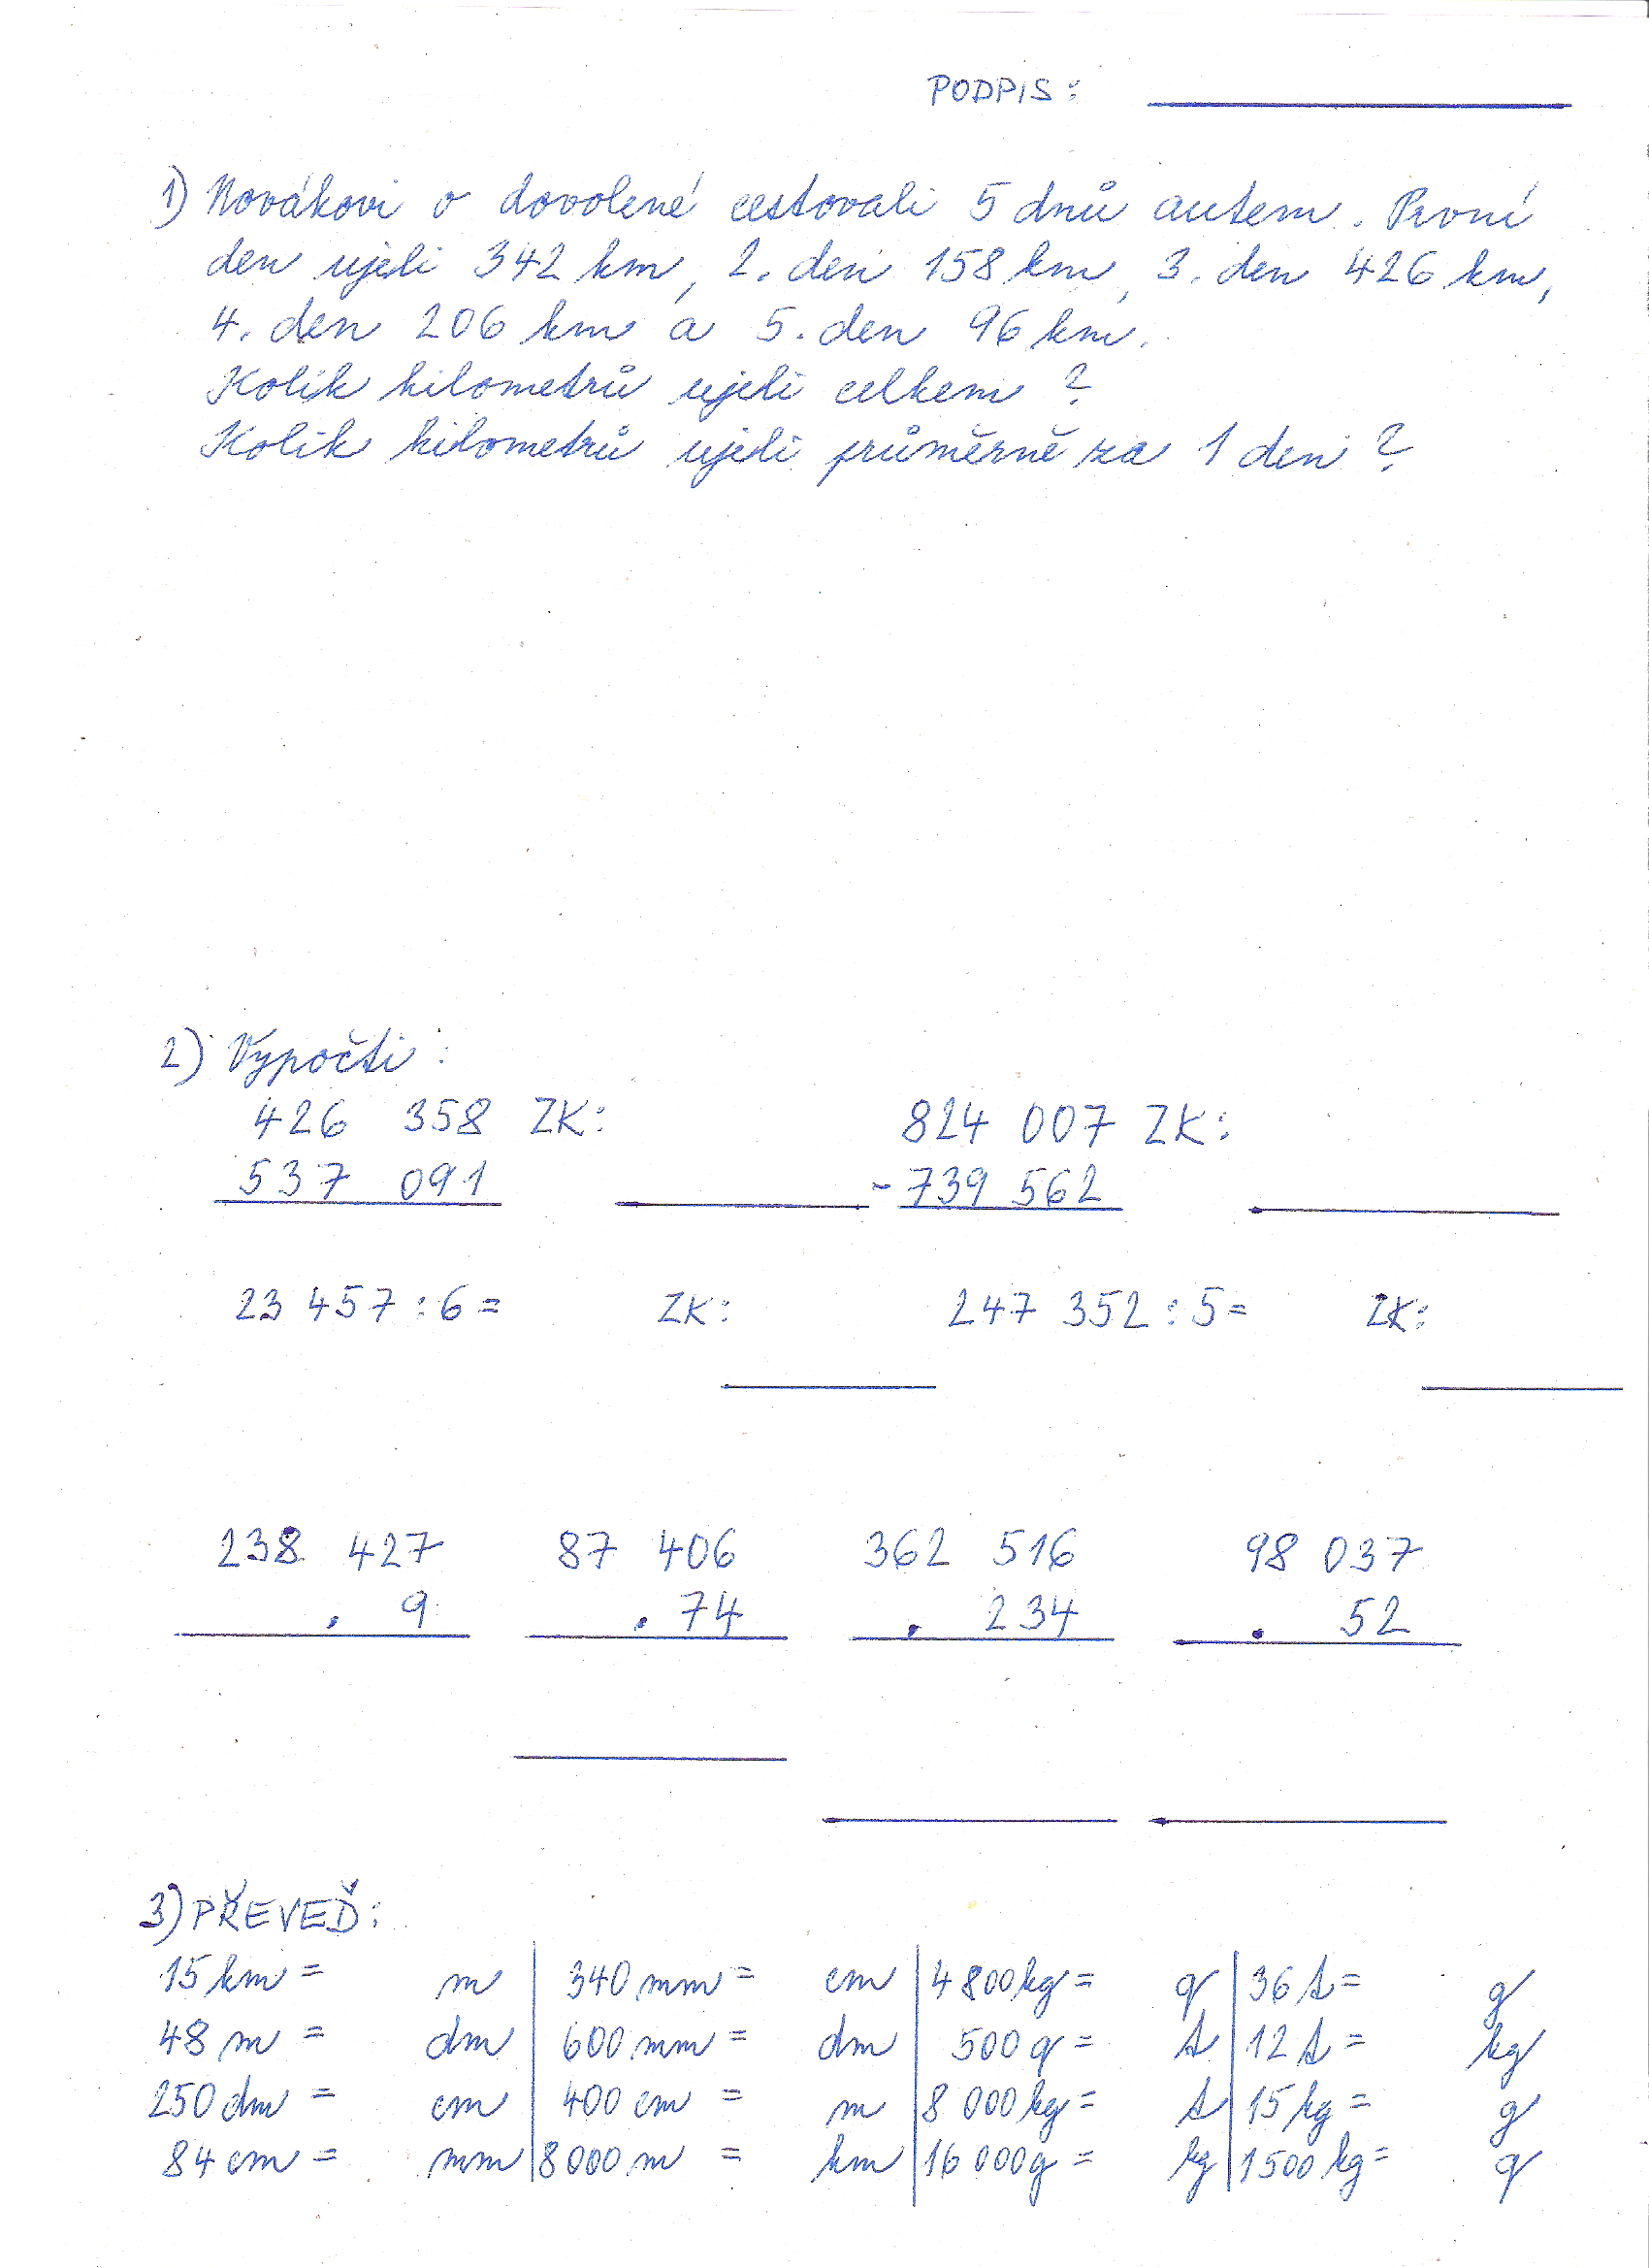 PODPIS:
1) Novákovi o dovolené cestovali 5 dnů autem. První
den ujeli 342 km, 2. den 158 km, 3. den 426 km,
4. den 206 km a 5. den 96 km.
Kolik kilometrů ujeli celkem ?
Kolik kilometrů ujeli průměrně za 1 den ?
2) Vypočti :
426 358 ZK: 824 007 ZK:
537 091 - 739 562
23 457 : 6 = ZK: 247 352 : 5 = ZK:
238 427 87 406 362 516 98 037
. 9 . 74 . 234 . 52
3) PŘEVEĎ:
15 km = m 340 mm = cm 4 800 kg = q 36 t = g
48 m = dm 600 mm = dm 500 q = t 12 t = kg
250 dm = cm 400 cm = m 8 000 kg = t 15 kg = g
84 cm = mm 8 000 m = km 16 000 g = kg 1 500 kg = q